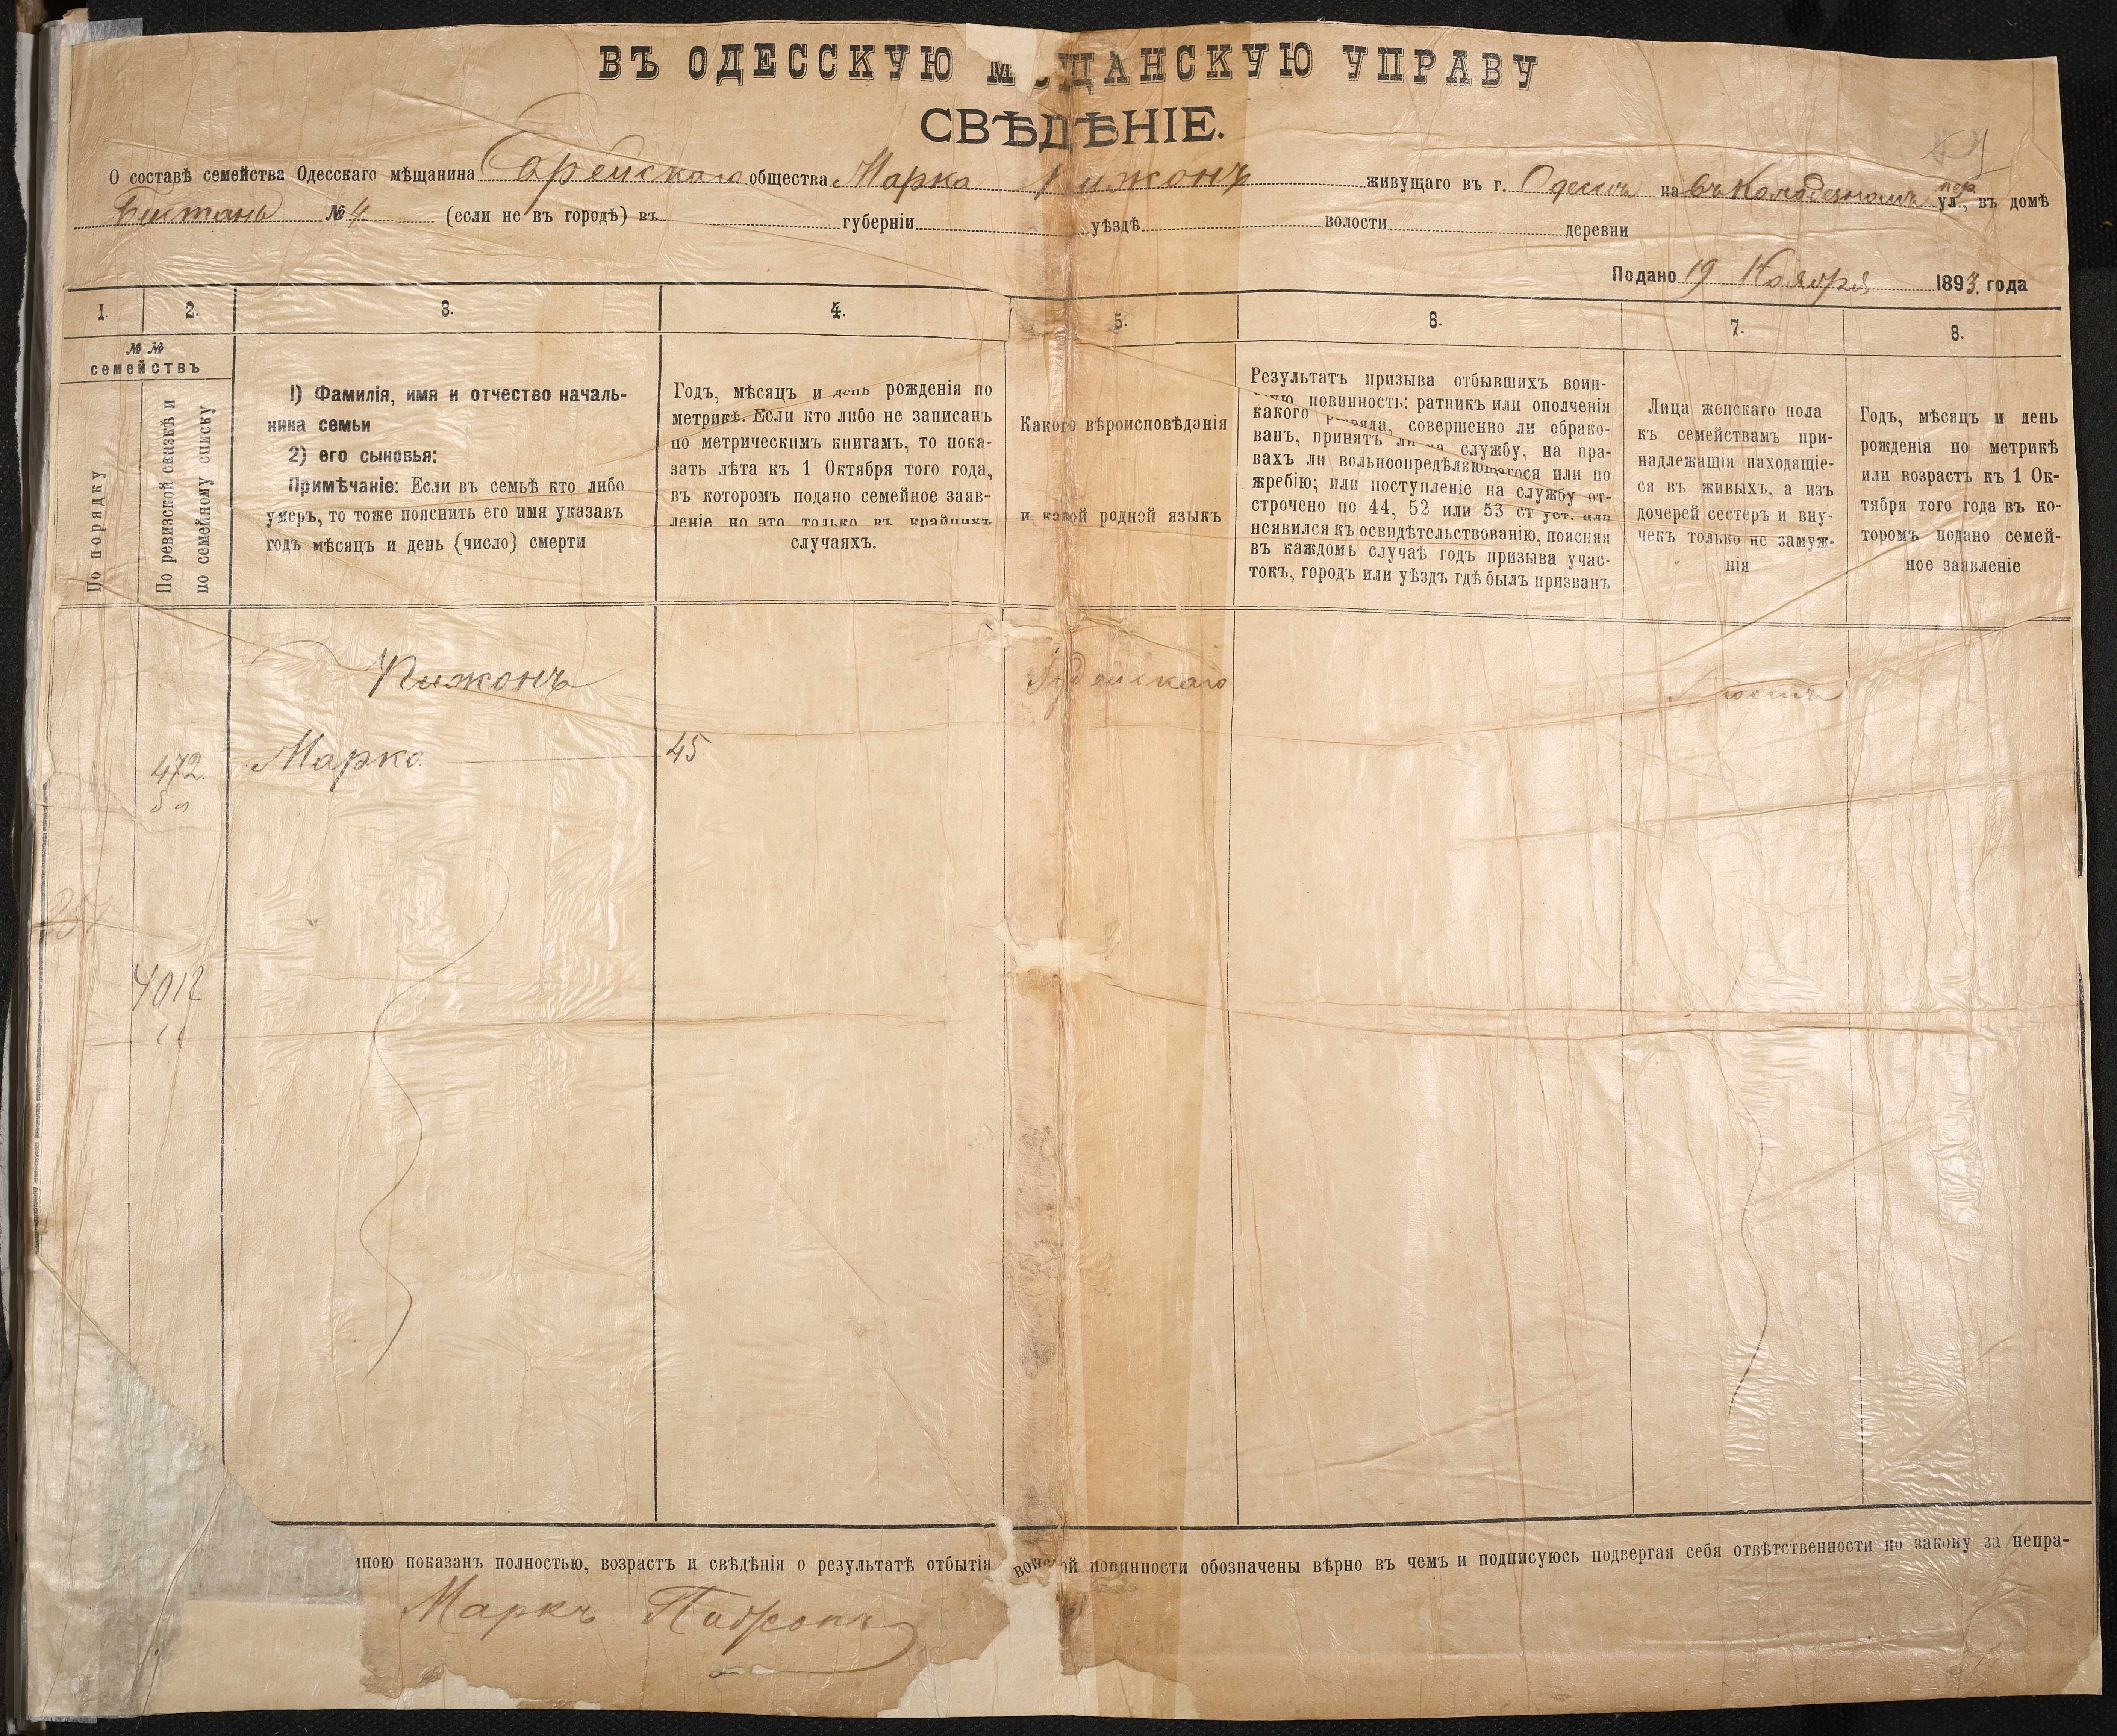 ВЪ ОДЕССКУЮ МѢЩАНСКУЮ УПРАВУ
СВѢДѢНІЕ.
О составѣ семейства Одесскаго мѣщанина общества Марко Пижонъ живущаго въ г. Одессѣ на въ Колодезномъ пер ул., въ домѣ
№ 4 (если не въ городѣ) въ губерніи уѣздѣ волости деревни
Подано 19 Ноября 1893 года
1. 2. 3. 4. 5. 6. 7. 8.
№ №
семействъ
По порядку
По ревизской сказкѣ и
по семейному списку
1) Фамилія, имя и отчество началь-
ника семьи
2) его сыновья:
Примѣчаніе: Если въ семьѣ кто либо
умеръ, то тоже пояснить его имя указавъ
годъ мѣсяцъ и день (число) смерти
Годъ, мѣсяцъ и день рожденія по
метрикѣ. Если кто либо не записанъ
по метрическимъ книгамъ, то пока-
зать лѣта къ 1 Октября того года,
въ которомъ подано семейное заяв-
леніе но это только въ крайнихъ
случаяхъ.
Какого вѣроисповѣданія
и какой родной языкъ
Результатъ призыва отбывшихъ воин-
скую повинность: ратникъ или ополченія
какого разряда, совершенно ли обрако-
ванъ, принятъ ли на службу, на пра-
вахъ ли вольноопредѣляющагося или по
жребію; или поступленіе на службу от-
строчено по 44, 52 или 53 ст уст. или
неявился къ освидѣтельствованію, поясняя
въ каждомъ случаѣ годъ призыва учас-
токъ, городъ или уѣздъ гдѣ былъ призванъ
Лица женскаго пола
къ семействамъ при-
надлежащія находящіе-
ся въ живыхъ, а изъ
дочерей сестеръ и вну-
чекъ только не замуж-
нія
Годъ, мѣсяцъ и день
рожденія по метрикѣ
или возрастъ къ 1 Ок-
тября того года въ ко-
торомъ подано семей-
ное заявленіе
Пижонъ Іудейскаго
472. Марко 45
4012
мною показанъ полностью, возрастъ и свѣдѣнія о результатѣ отбытія воинской повинности обозначены вѣрно въ чемъ и подписуюсь подвергая себя отвѣтственности по закону за непра-
Маркъ Пижонъ